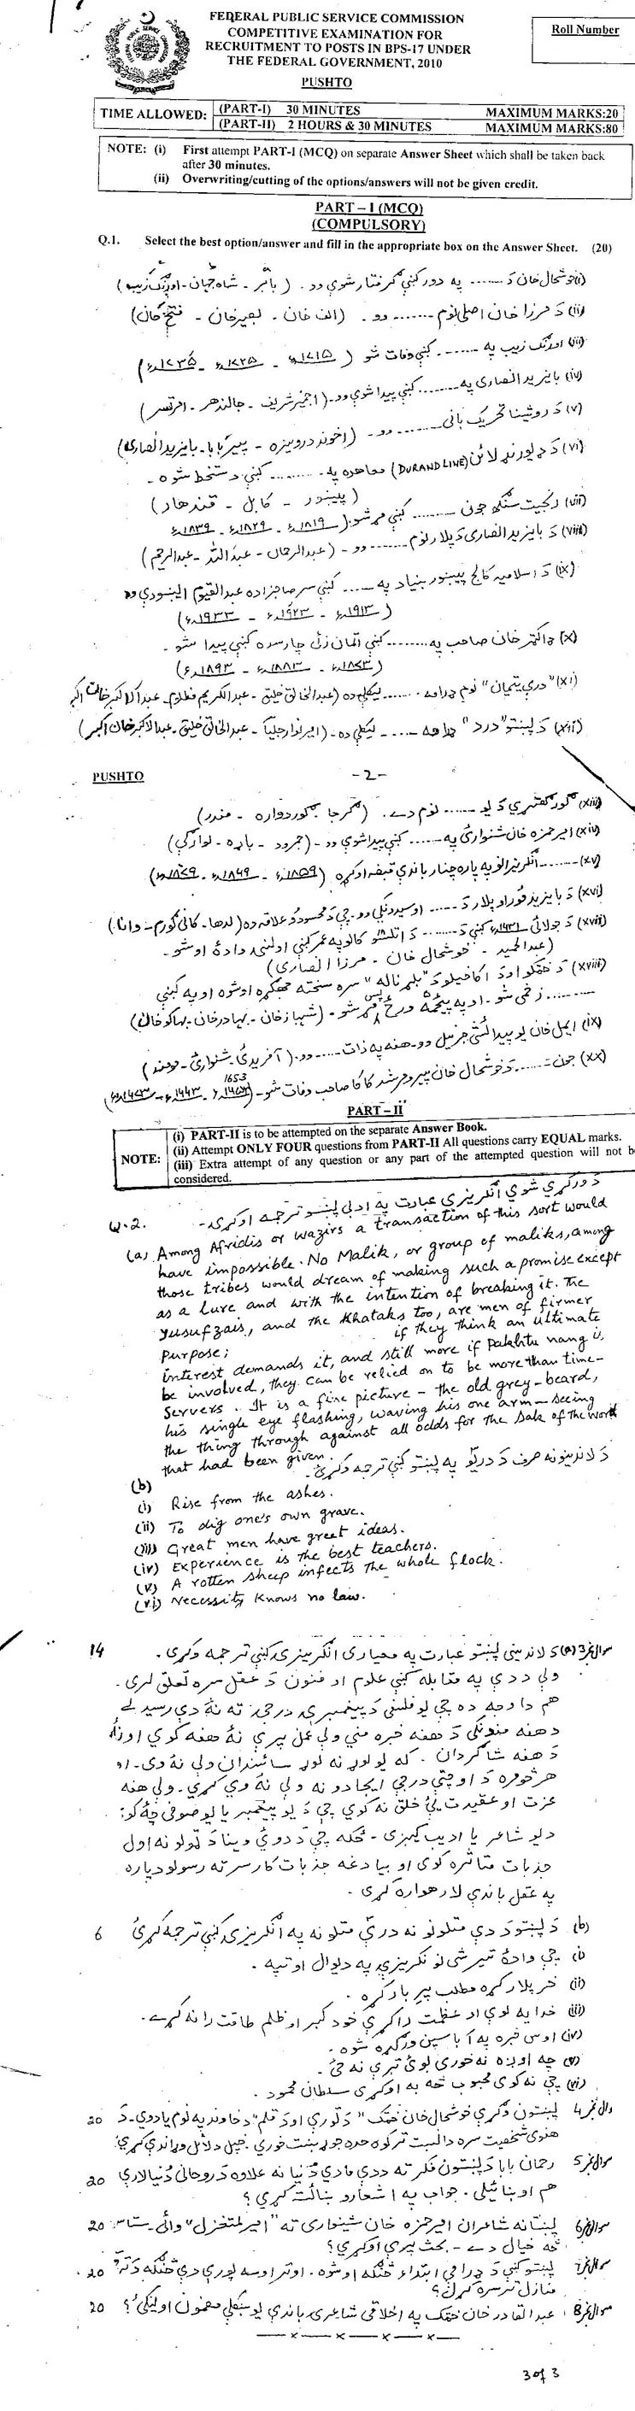 FEDERAL PUBLIC SERVICE COMMISSION
COMPETITIVE EXAMINATION FOR
RECRUITMENT TO POSTS IN BPS-17 UNDER
THE FEDERAL GOVERNMENT, 2010
Roll Number
PUSHTO
TIME ALLOWED: (PART-I) 30 MINUTES MAXIMUM MARKS:20
(PART-II) 2 HOURS & 30 MINUTES MAXIMUM MARKS:80
NOTE: (i) First attempt PART-I (MCQ) on separate Answer Sheet which shall be taken back
after 30 minutes.
(ii) Overwriting/cutting of the options/answers will not be given credit.
PART – I (MCQ)
(COMPULSORY)
Q.1. Select the best option/answer and fill in the appropriate box on the Answer Sheet. (20)
(i) خوشحال خان د ........ په دور کښې ګرفتار شوې وو. (بابر - شاه جهان - اورنګ زیب)
(ii) د مرزا خان اصلی نوم ........ وو. (الف خان - نصیر خان - فتح خان)
(iii) اورنګ زیب په ........ کښې وفات شو
(iv) بایزید انصاری په ........ کښې پیدا شوې وو - (اجمیر شریف - جالندهر - امرتسر)
(v) د روښنیا تحریک بانی ........ وو - (اخوند درویزه - پیر بابا - بایزید انصاری)
(vi) د ډیورنډ لائن (DURAND LINE) معاهده په ........ کښې دستخط شوه -
(پیښور - کابل - قندهار)
(vii) رنجیت سنګه جون ........ کښې مړ شو. (۱۸۱۹ء - ۱۸۲۹ء - ۱۸۳۹ء
(viii) د بایزید انصاری د پلار نوم ........ وو - (عبدالرحمان - عبدالله - عبدالرحیم)
(ix) د اسلامیه کالج پیښور بنیاد په ........ کښې سر صاحبزاده عبدالقیوم ایښودې وو
(۱۹۱۳ء - ۱۹۲۳ء - ۱۹۳۳ء)
(x) ډاکټر خان صاحب په ........ کښې اتمان زئی چارسده کښې پیدا شو -
(۱۸۷۳ء - ۱۸۸۳ء - ۱۸۹۳ء)
(xi) "درې یتیمان" نوم ډرامه ........ لیکلې ده (عبدالخالق خلیق - عبدالکریم مظلوم - عبدالاکبر خان اکبر
(xii) د پښتو "درد" ډرامه ........ لیکلې ده - (امیر نواز جلیا - عبدالخالق خلیق - عبدالاکبر خان اکبر)
PUSHTO -2-
(xiii) ګور ګټهړې د یو ........ نوم دے. (ګرجا - ګوردواره - مندر)
(xiv) امیر حمزه خان شنواری په ........ کښې پیدا شوې وو - (جمرود - باړه - لواړګي)
(xv) ........ انګریزانو په پاره چنار باندې قبضه اوکړه
(xvi) د بایزید پلار د ........ اوسیدونکې وو چې د محسودو علاقه ده (لدها - کانی ګورم - وانا)
(xvii) د جولائی کښې د ........ د اتلسو کالو په عمر کښې اولنۍ وادۀ اوشو -
(عبدالحمید - خوشحال خان - مرزا انصاری)
(xviii) د خټکو او د اکاخیلو سره سخته جهګړه اوشوه او په کښې
........ زخمی شو - او په پینځمه ورځ پس مړ شو - (شهباز خان - بهادر خان - بهاکو خان)
(ix) ایمل خان یو پیدائشی جرنیل وو - هغه په ذات ........ وو. (آفریدی - شنواری - مومند)
(xx) جون ........ د خوشحال خان پیر و مرشد کاکا صاحب وفات شو -
1653
PART – II
NOTE: (i) PART-II is to be attempted on the separate Answer Book.
(ii) Attempt ONLY FOUR questions from PART-II All questions carry EQUAL marks.
(iii) Extra attempt of any question or any part of the attempted question will not be
considered.
Q.2. د ورکړې شوې انګریزي عبارت په ادبی پښتو ترجمه اوکړئ -
(a) Among Afridis or wazirs a transaction of this sort would
have impossible. No Malik, or group of maliks, among
those tribes would dream of making such a promise except
as a Lure and with the intention of breaking it. The
Yusufzais, and the Khataks too, are men of firmer
Purpose; if they think an ultimate
interest demands it, and still more if Pakhtu nang is
be involved, they can be relied on to be more than time-
Servers. It is a fine picture – the old grey-beard,
his single eye flashing, waving his one arm – seeing
the thing through against all odds for the sak of the word
that had been given.
(b) د لاندینو نه صرف د دریو په پښتو کښې ترجمه وکړئ.
(i) Rise from the ashes.
(ii) To dig one's own grave.
(iii) Great men have greet ideas.
(iv) Experience is the best teachers.
(v) A rotten sheep infects the whole flock.
(vi) Necessity knows no law.
سوال نمبر 3 (a) د لاندینی پښتو عبارت په معیاری انګریزی کښې ترجمه وکړی. 14
ولې د دې په مقابله کښې علوم او فنون د عقل سره تعلق لری.
هم دا وجه ده چې یو فلسفی د پیغمبرۍ درجې ته نۀ دې رسیدلے
د هغه منونکی د هغه خبره منی ولې عمل پرې نۀ هغه کوي او نۀ
د هغه شاګردان. که یو لوړ نه لوړ سائنسدان ولې نۀ وی - او
هر څومره د اوچتې درجې ایجادونه ولې نۀ وي کړي - ولې هغه
عزت او عقیدت یې خلق نه کوي چې د یو پیغمبر یا یو صوفی
د یو شاعر یا ادیب کیږي - ځکه چې د دوئ وینا د ټولو نه اول
جذبات متاثره کوی او بیا دغه جذبات کار سر ته رسولو دپاره
په عقل باندې لار هواره کړی.
(b) د پښتو د دې متلونو نه درې متلونه په انګریزی کښې ترجمه کړئ 6
(i) چې وادۀ تیر شی نو نکریزې په دیوال اوتپه.
(ii) خر پلار کړه مطلب پرې بار کړه.
(iii) خدایه لوې او عظمت راکړې خو د کبر او ظلم طاقت را نه کړے.
(iv) اوس خبره په آباسین ورګډه شوه.
(v) چه اوږه نه خوری بوئ ترې نه ځی.
(vi) چې نه کوی محبوب څه به اوکړی سلطان محمود.
سوال نمبر 4 پښتون مفکرې خوشحال خان خټک "د تورې او د قلم" د خاوند په نوم یادوي - د 20
هغوی شخصیت سره دا نسبت تر کومه حده جوړښت خوري. خپل دلائل وړاندې کړئ.
سوال نمبر 5 رحمان بابا د پښتون فکر ته د دې مادي دُنیا نه علاوه د روحانی دُنیا لارې 20
هم اوښائیلی. جواب په اشعارو ښائسته کړئ؟
سوال نمبر 6 پښتانه شاعران امیر حمزه خان شینواری ته "امیر المتغزل" وائی - ستاسو 20
څه خیال دے - بحث پرې اوکړئ؟
سوال نمبر 7 پښتو کښې د ډرامې ابتداء څنګه اوشوه - او تر اوسه پورې دې څنګه د ترقئ 20
منازل تر سره کړل؟
سوال نمبر 8 عبدالقادر خان خټک په اخلاقی شاعری باندې یو ښکلې مضمون اولیکئ؟ 20
3 of 3